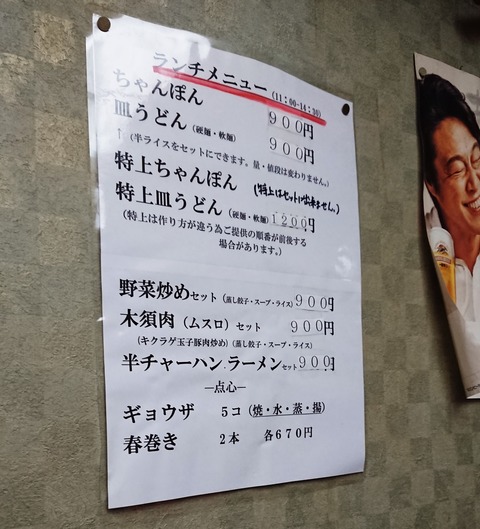 ランチメニュー(11:00-14:30)
ちゃんぽん 900円
皿うどん(硬麺・軟麺) 900円
↑(半ライスをセットにできます。量・値段は変わりません。)
特上ちゃんぽん (特上はセットに出来ません。)
特上皿うどん(硬麺・軟麺)1200円
(特上は作り方が違う為ご提供の順番が前後する
場合があります。)
野菜炒めセット(蒸し餃子・スープ・ライス)900円
木須肉(ムスロ)セット 900円
(キクラゲ玉子豚肉炒め)(蒸し餃子・スープ・ライス)
半チャーハン.ラーメンセット900円
―点心―
ギョウザ 5コ(焼・水・蒸・揚)
春巻き 2本 各670円